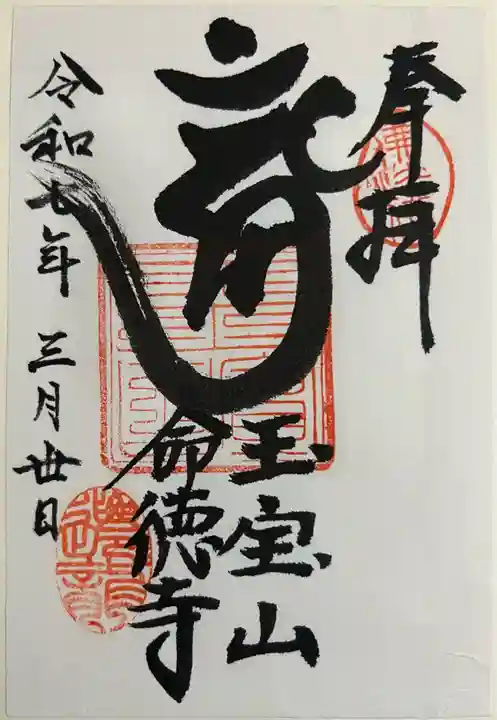 奉拝
龍
玉宝山
命徳寺
令和七年 三月丗日